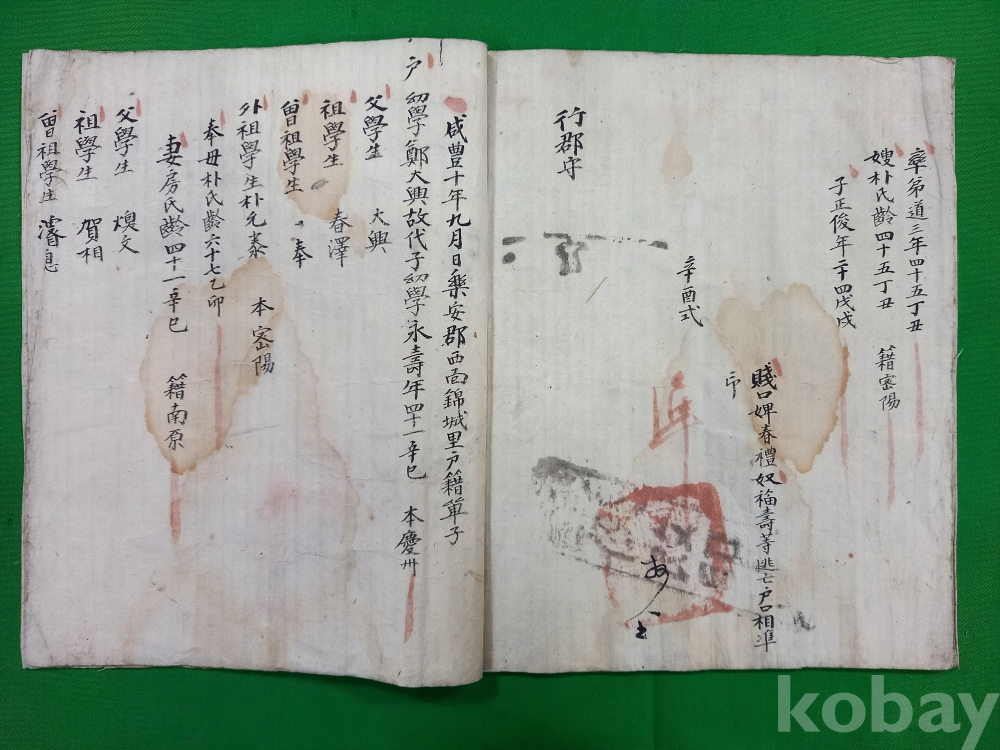 率弟道三年四十五丁丑
嫂朴氏齡四十五丁丑 籍密陽
子正俊年二十四戊戌
賤口婢春禮奴福壽等逃亡戶口相準
印
辛酉式
行郡守
咸豊十年九月日樂安郡西面錦城里戶籍單子
戶
幼學鄭大興故代子幼學永壽年四十一辛巳 本慶州
父學生 大興
祖學生 春澤
曾祖學生 奉
外祖學生朴元泰 本密陽
奉母朴氏齡六十七乙卯
妻房氏齡四十一辛巳 籍南原
父學生 煥文
祖學生 賀相
曾祖學生 濬息
kobay